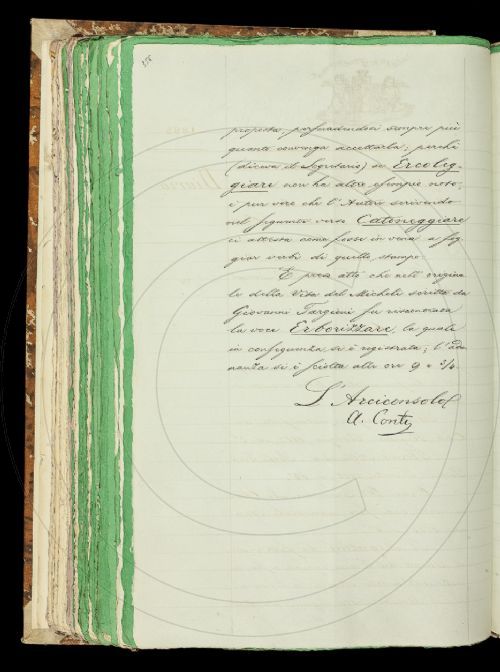 proposta, persuadendosi sempre più
quanto convenga accettarla; perchè
(diceva il Segretario) se Ercoleg-
giare non ha altro esempio noto,
è pur vero che l'Autore scrivendo
nel seguente verso Catoneggiare
ci attesta come fosse in vena a fog-
giar verbi di quello stampo.
E preso atto che nell'origina-
le della Vita del Micheli scritta da
Giovanni Targioni fu riscontrata
la voce Erborizzare, la quale
in conseguenza si è registrata; l'adu-
nanza si è sciolta alle ore 9 e 3/4.
L'Arciconsolo
A. Conti